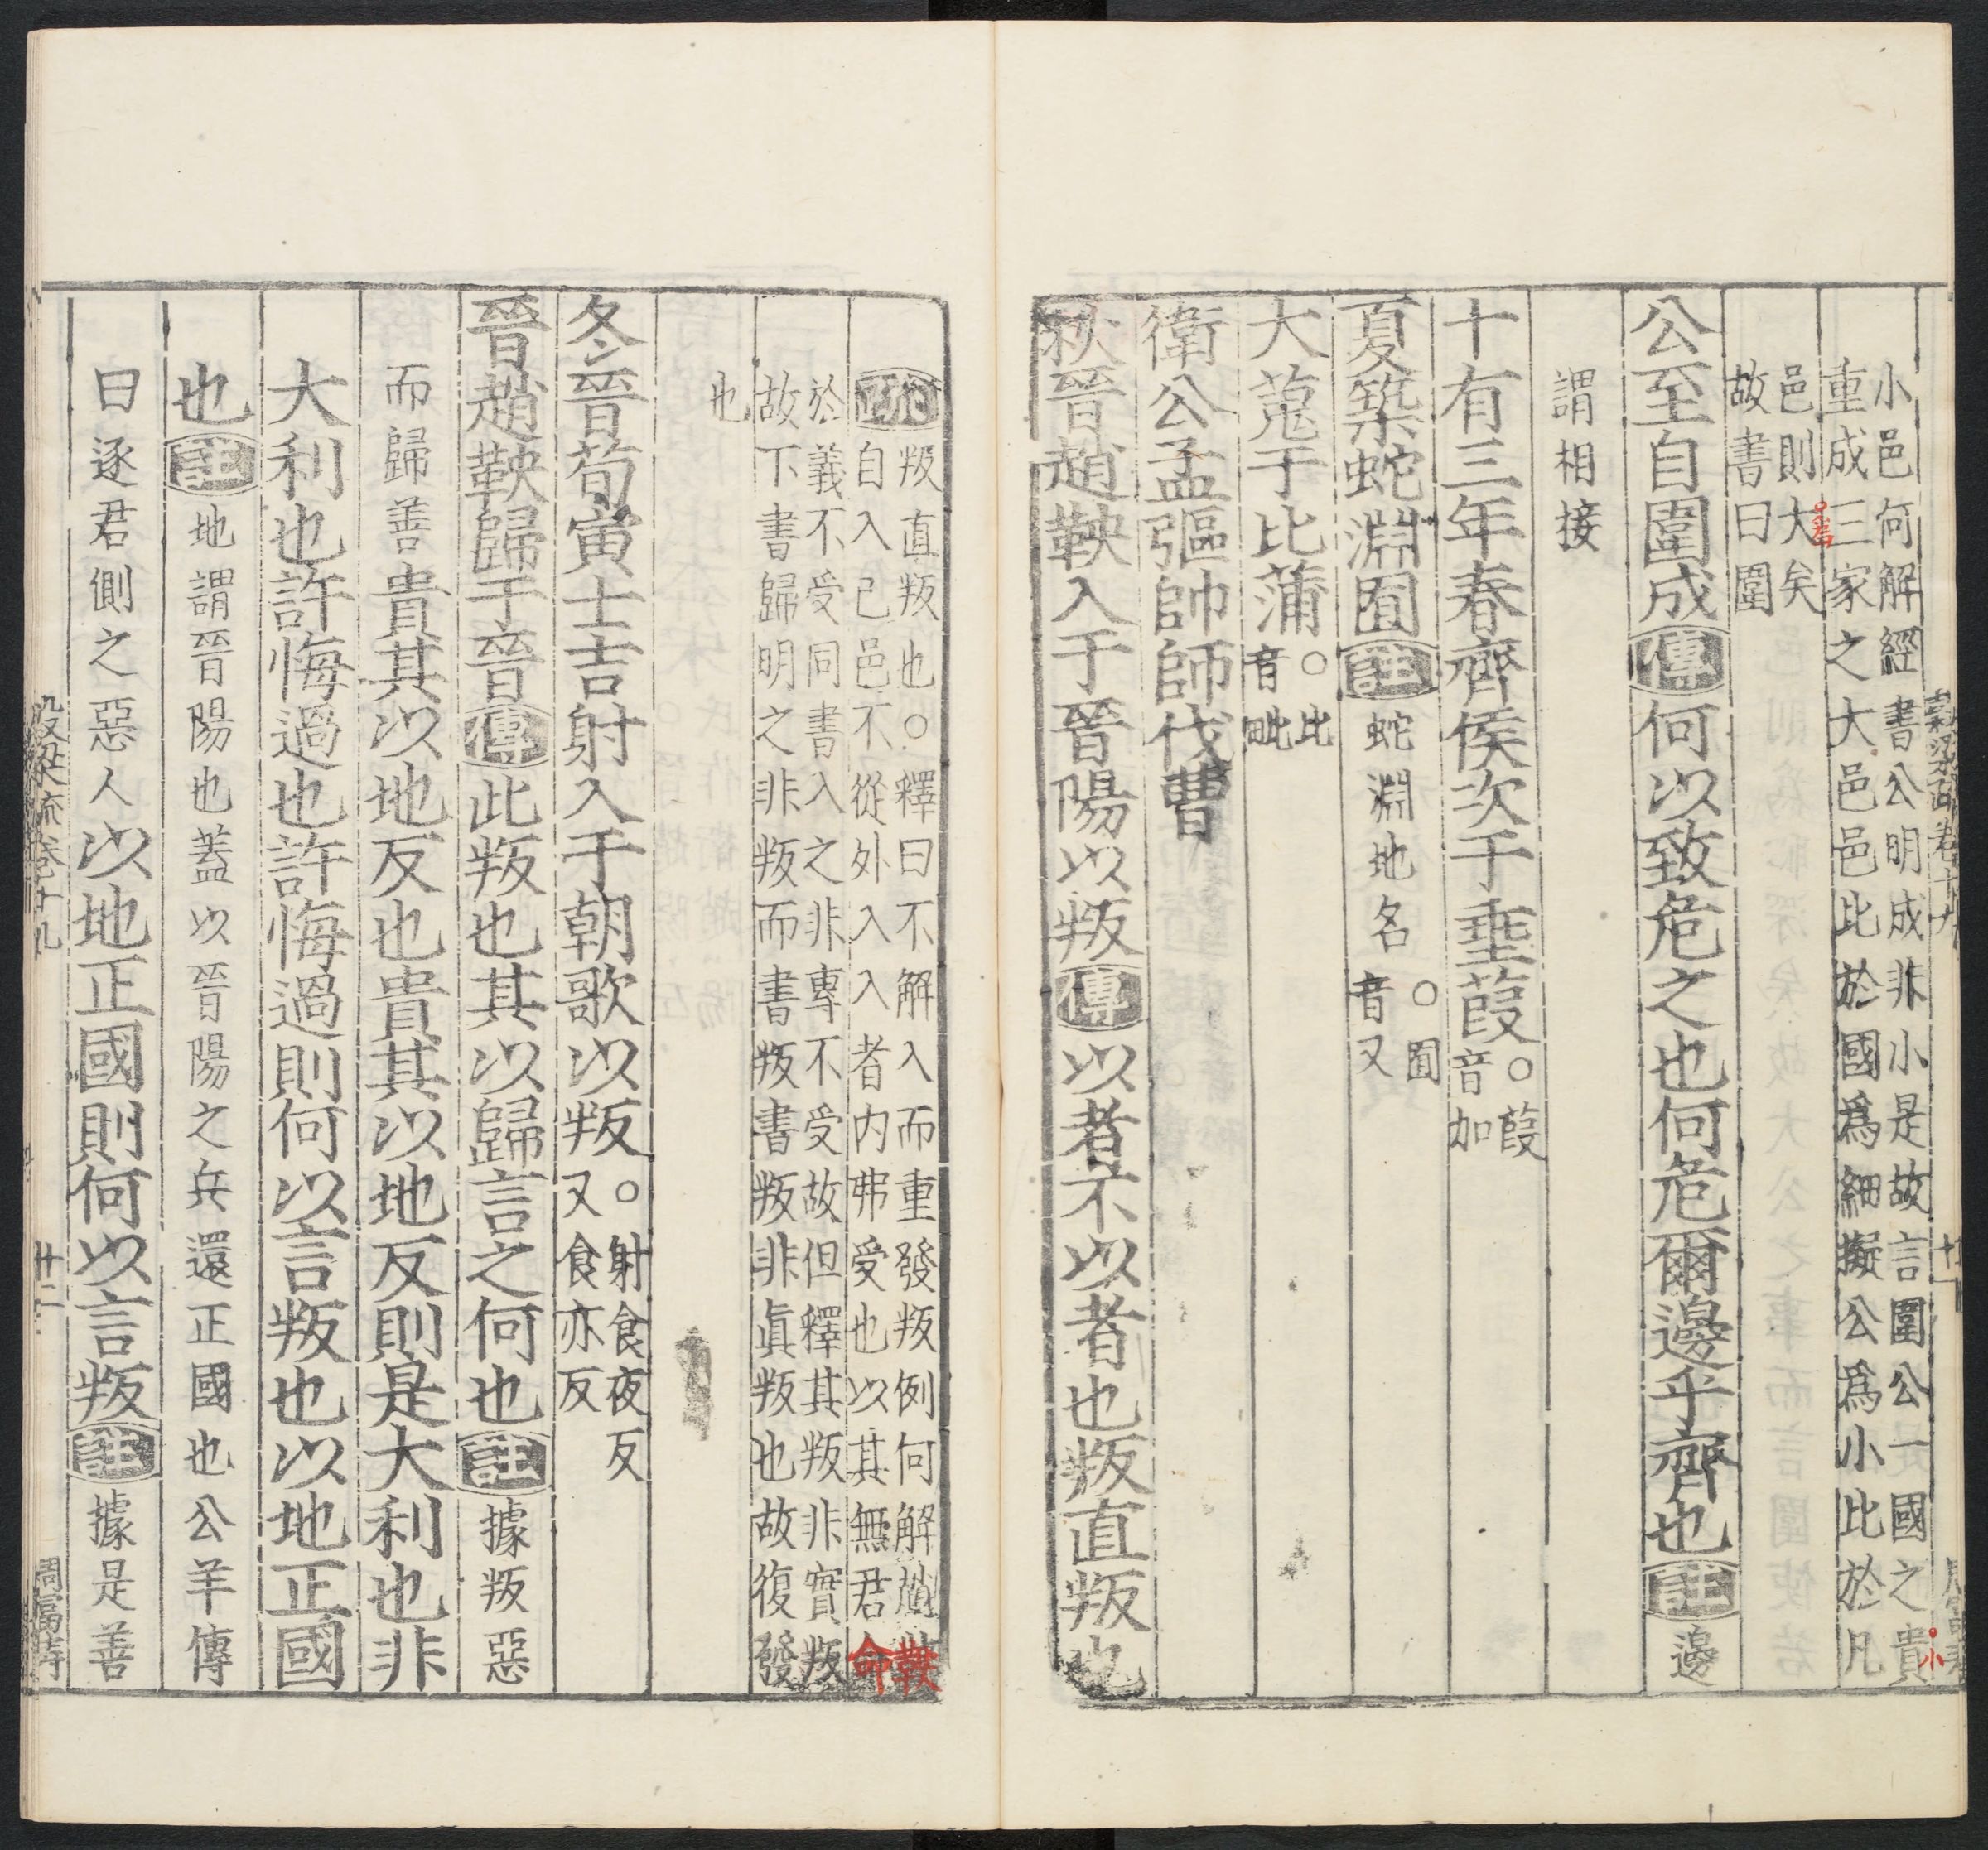 小邑何解經書公明成非小是故言圍公一國之貴
重成三家之大邑邑比於國爲細擬公爲小比於凡
邑則大矣
故書曰圍
公至自圍成傳何以致危之也何危爾邊乎齊也註邊
謂相接
十有三年春齊侯次于垂葭○葭音加
夏築蛇淵囿註蛇淵地名○囿音又
大蒐于比蒲○比音毗
衛公孟彄帥師伐曹
秋晉趙鞅入于晉陽以叛傳以者不以者也叛直叛也
疏叛直叛也○釋曰不解入而重發叛例何解趙鞅
自入已邑不從外入入者内弗受也以其無君命
於義不受同書入之非專不受故但釋其叛非實叛
故下書歸明之非叛而書叛書叛非眞叛也故復發
也
冬晉荀寅士吉射入于朝歌以叛○射食夜反又食亦反
晉趙鞅歸于晉傳此叛也其以歸言之何也註據叛惡
而歸善貴其以地反也貴其以地反則是大利也非
大利也許悔過也許悔過則何以言叛也以地正國
也註地謂晉陽也蓋以晉陽之兵還正國也公羊傳
曰逐君側之惡人以地正國則何以言叛註據是善
穀梁疏卷十九
廿二